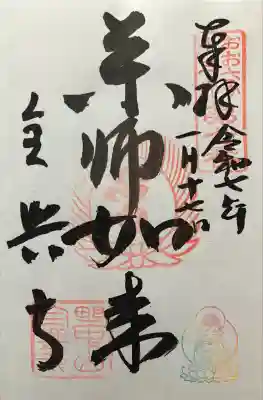 奉拝
令和七年
一月十七日
薬師如来
全興寺